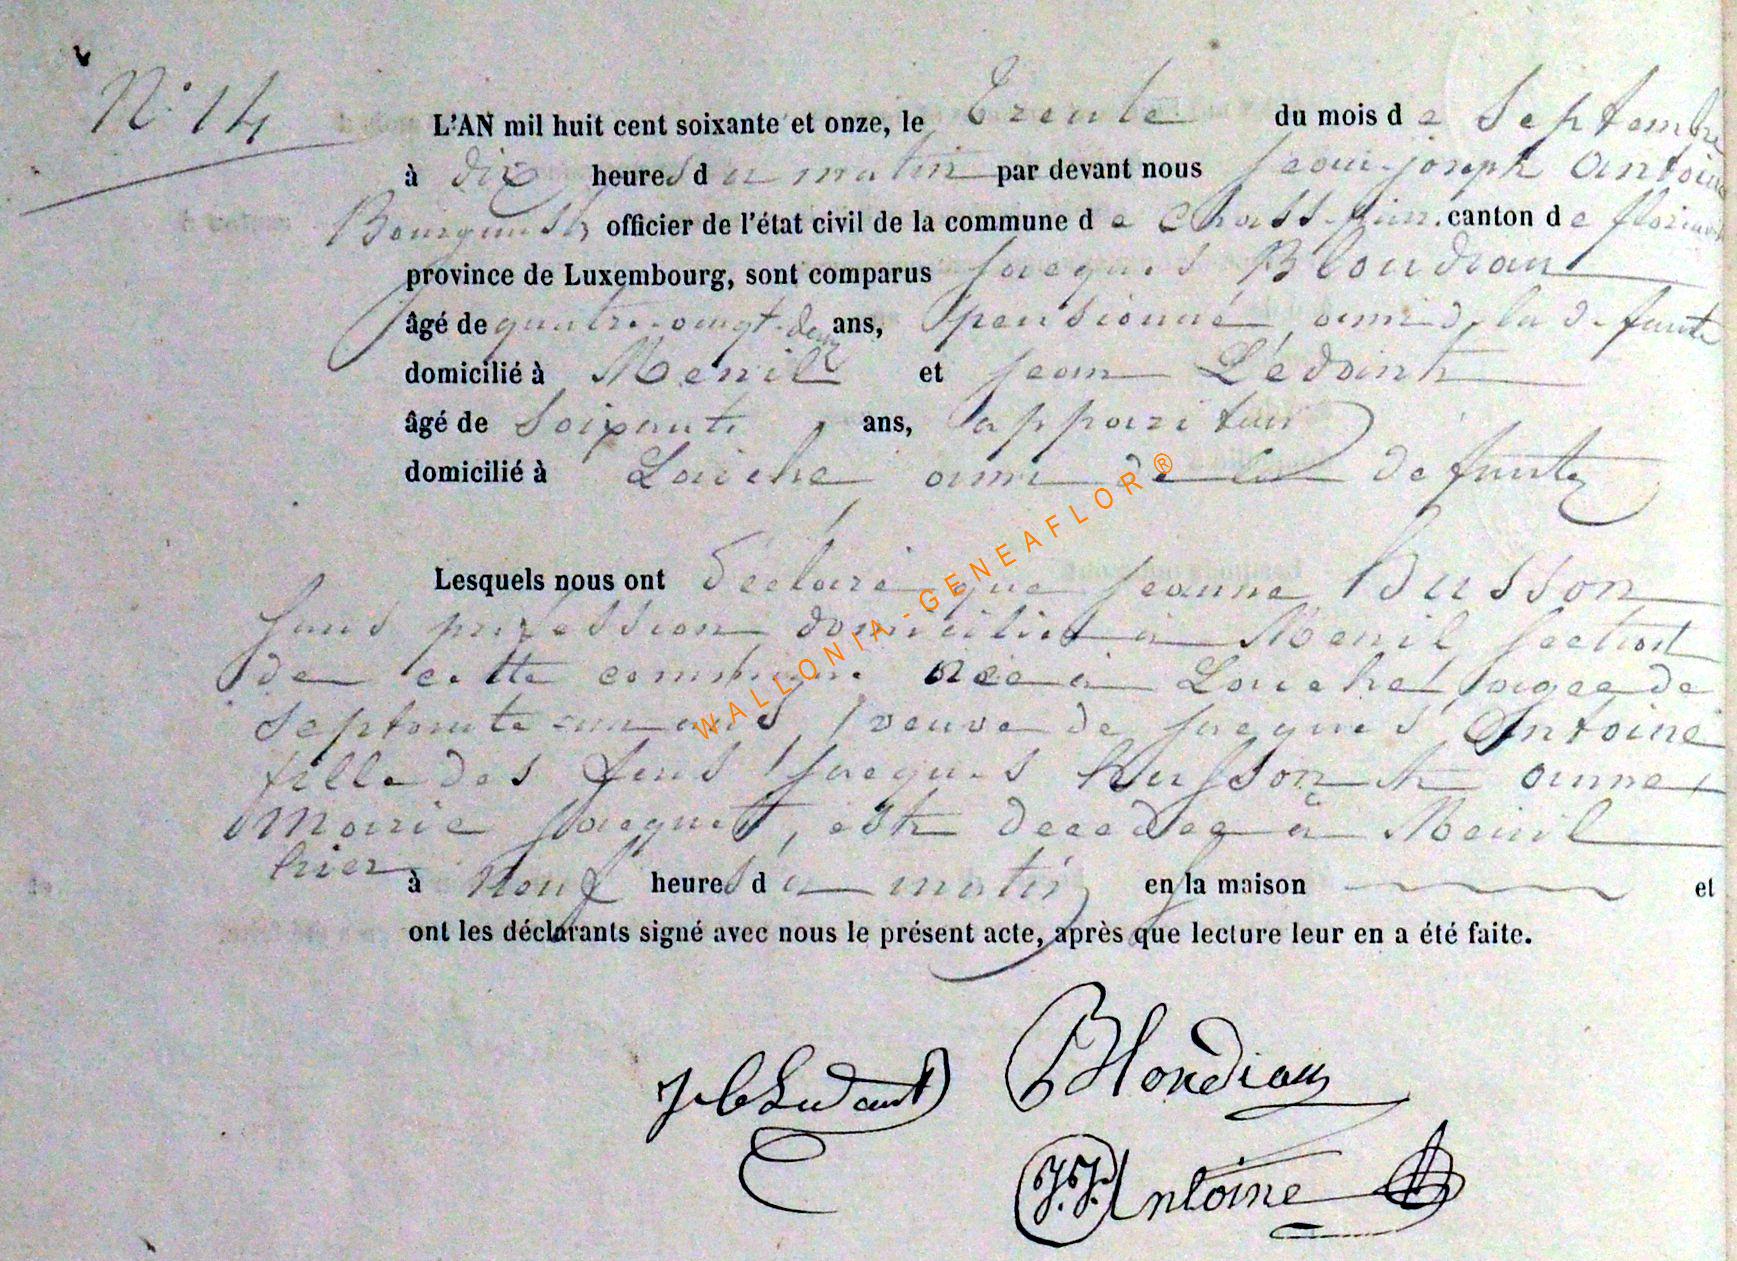 N° 14
L'AN mil huit cent soixante et onze, le Trente du mois de Septembre
à dix heures du matin par devant nous Jean-joseph Antoine
Bourgmestre officier de l'état civil de la commune de Chassepierre canton de florenville
province de Luxembourg, sont comparus Jacques Blondiau
âgé de quatre-vingt-deux ans, pensionné, ami de la defunte
domicilié à Menil et jean
âgé de Soixante ans, appariteur
domicilié à Laiche, ami de la defunte
Lesquels nous ont declaré que jeanne Husson
sans profession domiciliée à Menil section
de cette commune née à Laiche, agée de
septante-un ans, veuve de jacques Antoine
fille des feus jacques husson et anne
Marie jacquet, est decedee à Menil
hier à Neuf heures du matin en la maison et
ont les déclarants signé avec nous le présent acte, après que lecture leur en a été faite.
Blondiau
J.J. Antoine
WALLONIA-GENEAFLOR®